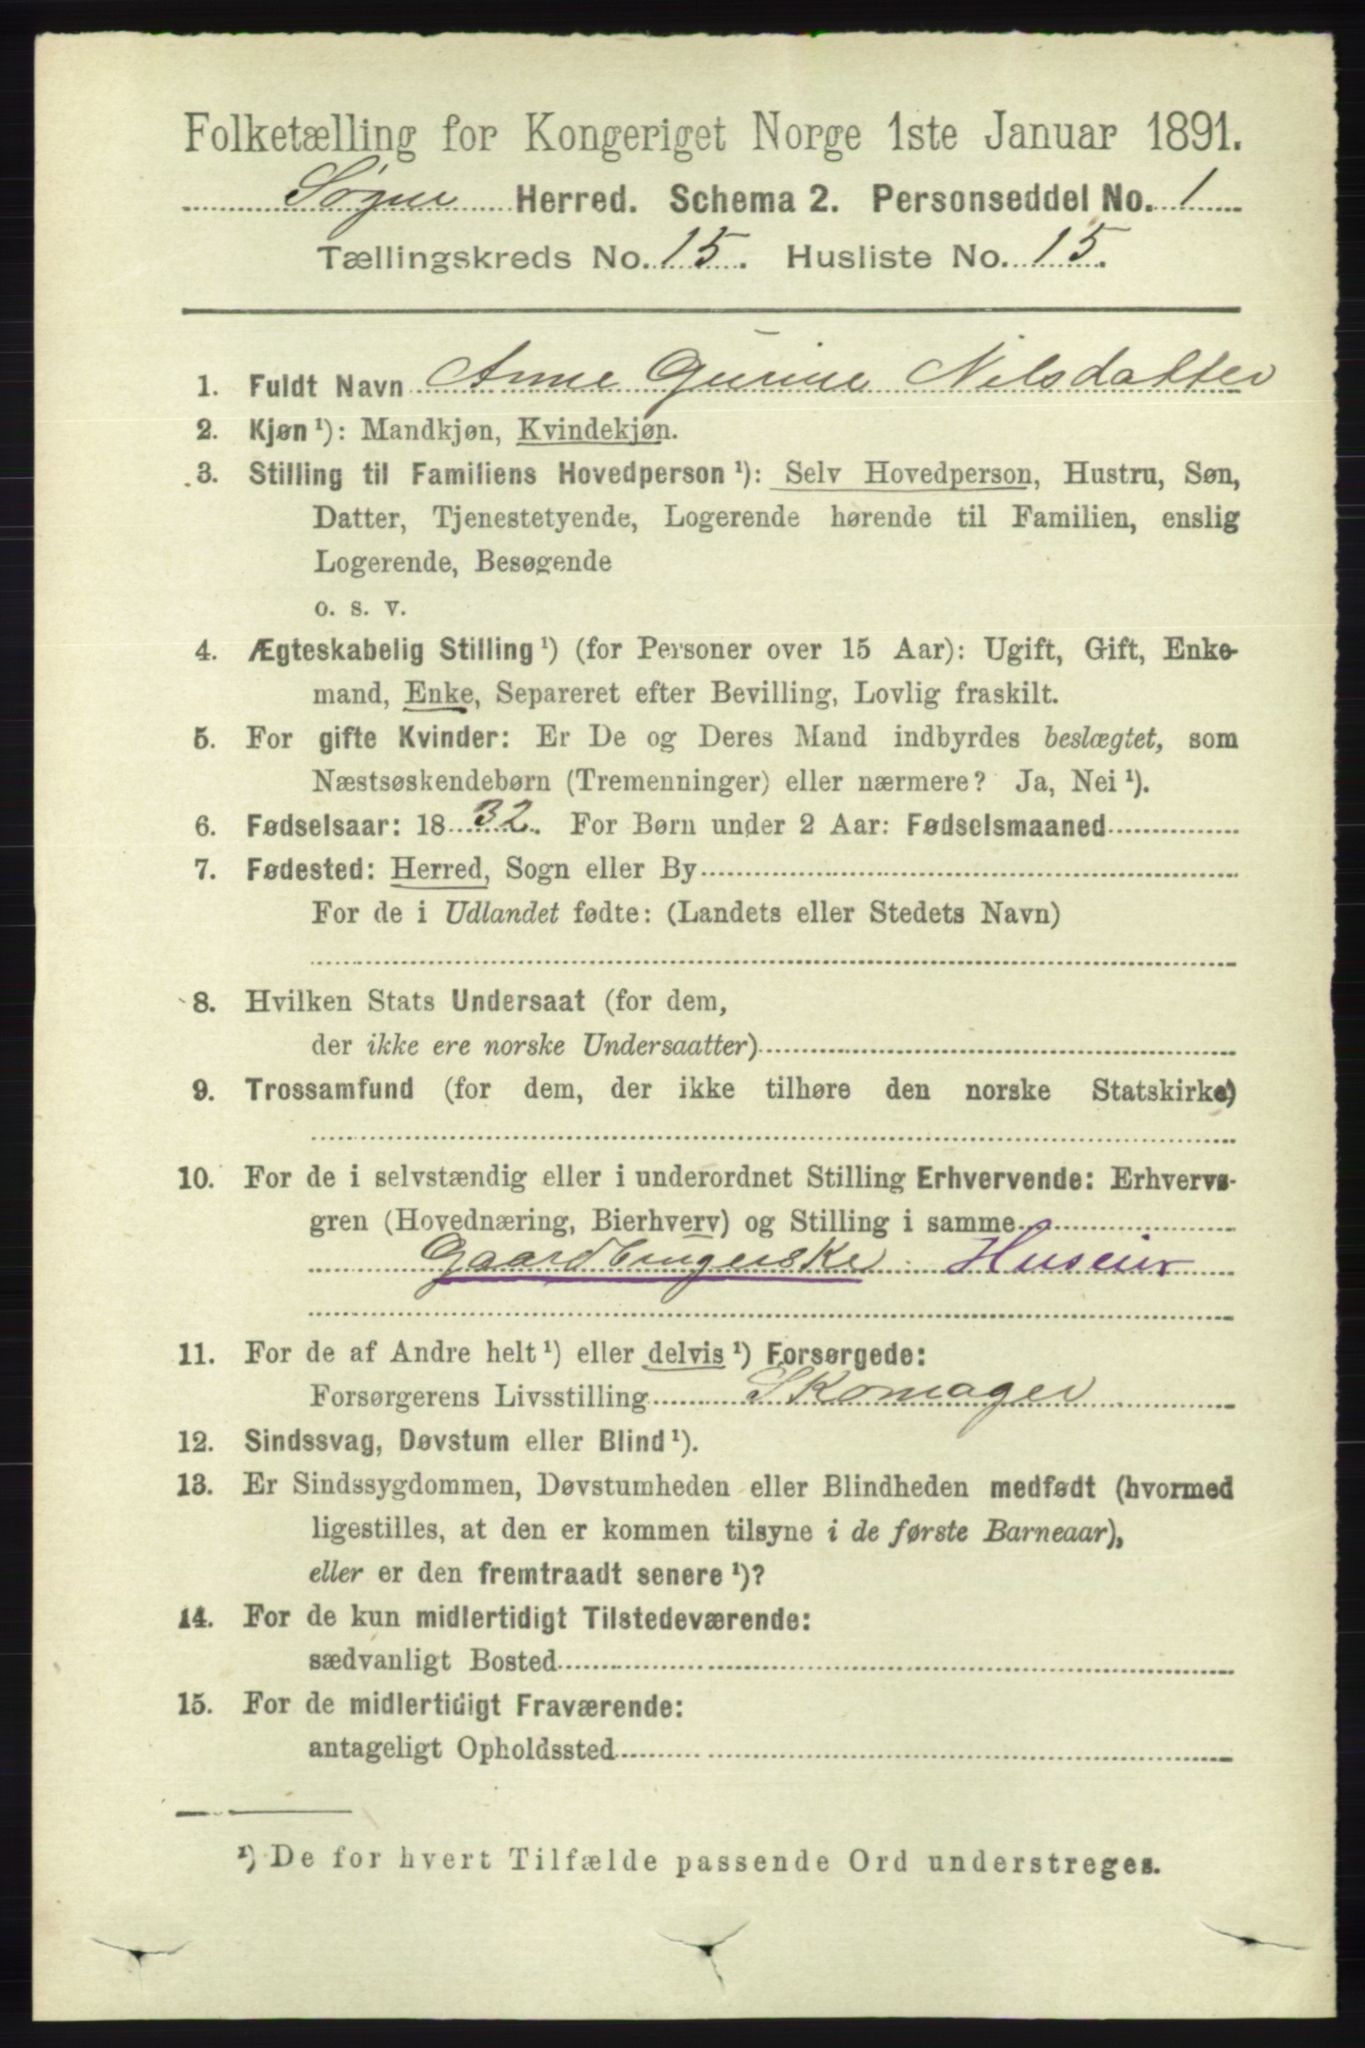 Folketælling for Kongeriget Norge 1ste Januar 1891.
Søgne Herred. Schema 2. Personseddel No. 1
Tællingskreds No. 15. Husliste No. 15.
1. Fuldt Navn Anne Gurine Nilsdatter
2. Kjøn¹): Mandkjøn, Kvindekjøn.
3. Stilling til Familiens Hovedperson¹): Selv Hovedperson, Hustru, Søn,
Datter, Tjenestetyende, Logerende hørende til Familien, enslig
Logerende, Besøgende
o. s. v.
4. Ægteskabelig Stilling¹) (for Personer over 15 Aar): Ugift, Gift, Enke-
mand, Enke, Separeret efter Bevilling, Lovlig fraskilt.
5. For gifte Kvinder: Er De og Deres Mand indbyrdes beslægtet, som
Næstsøskendebørn (Tremenninger) eller nærmere? Ja, Nei¹).
6. Fødselsaar: 1832. For Børn under 2 Aar: Fødselsmaaned
7. Fødested: Herred, Sogn eller By
For de i Udlandet fødte: (Landets eller Stedets Navn)
8. Hvilken Stats Undersaat (for dem,
der ikke ere norske Undersaatter)
9. Trossamfund (for dem, der ikke tilhøre den norske Statskirke)
10. For de i selvstændig eller i underordnet Stilling Erhvervende: Erhvervs-
gren (Hovednæring, Bierhverv) og Stilling i samme
Gaardbrugerske Huseier
11. For de af Andre helt¹) eller delvis¹) Forsørgede:
Forsørgerens Livsstilling Skomager
12. Sindssvag, Døvstum eller Blind¹).
13. Er Sindssygdommen, Døvstumheden eller Blindheden medfødt (hvormed
ligestilles, at den er kommen tilsyne i de første Barneaar),
eller er den fremtraadt senere¹)?
14. For de kun midlertidigt Tilstedeværende:
sædvanligt Bosted
15. For de midlertidigt Fraværende:
antageligt Opholdssted
¹) De for hvert Tilfælde passende Ord understreges.